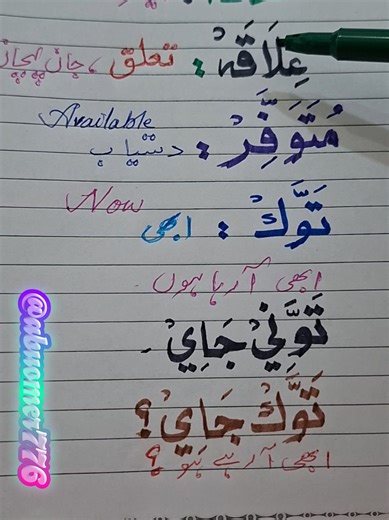 عِلَاقَهْ : تعلق ، جان پہچان
مُتَوَفِّرْ : دستیاب Available
تَوَّكْ : ابھی Now
ابھی آ رہا ہوں
تَوَّنِيْ جَايِيْ .
تَوَّكْ جَايِيْ ؟
ابھی آ رہے ہو ؟
@abuomer1776